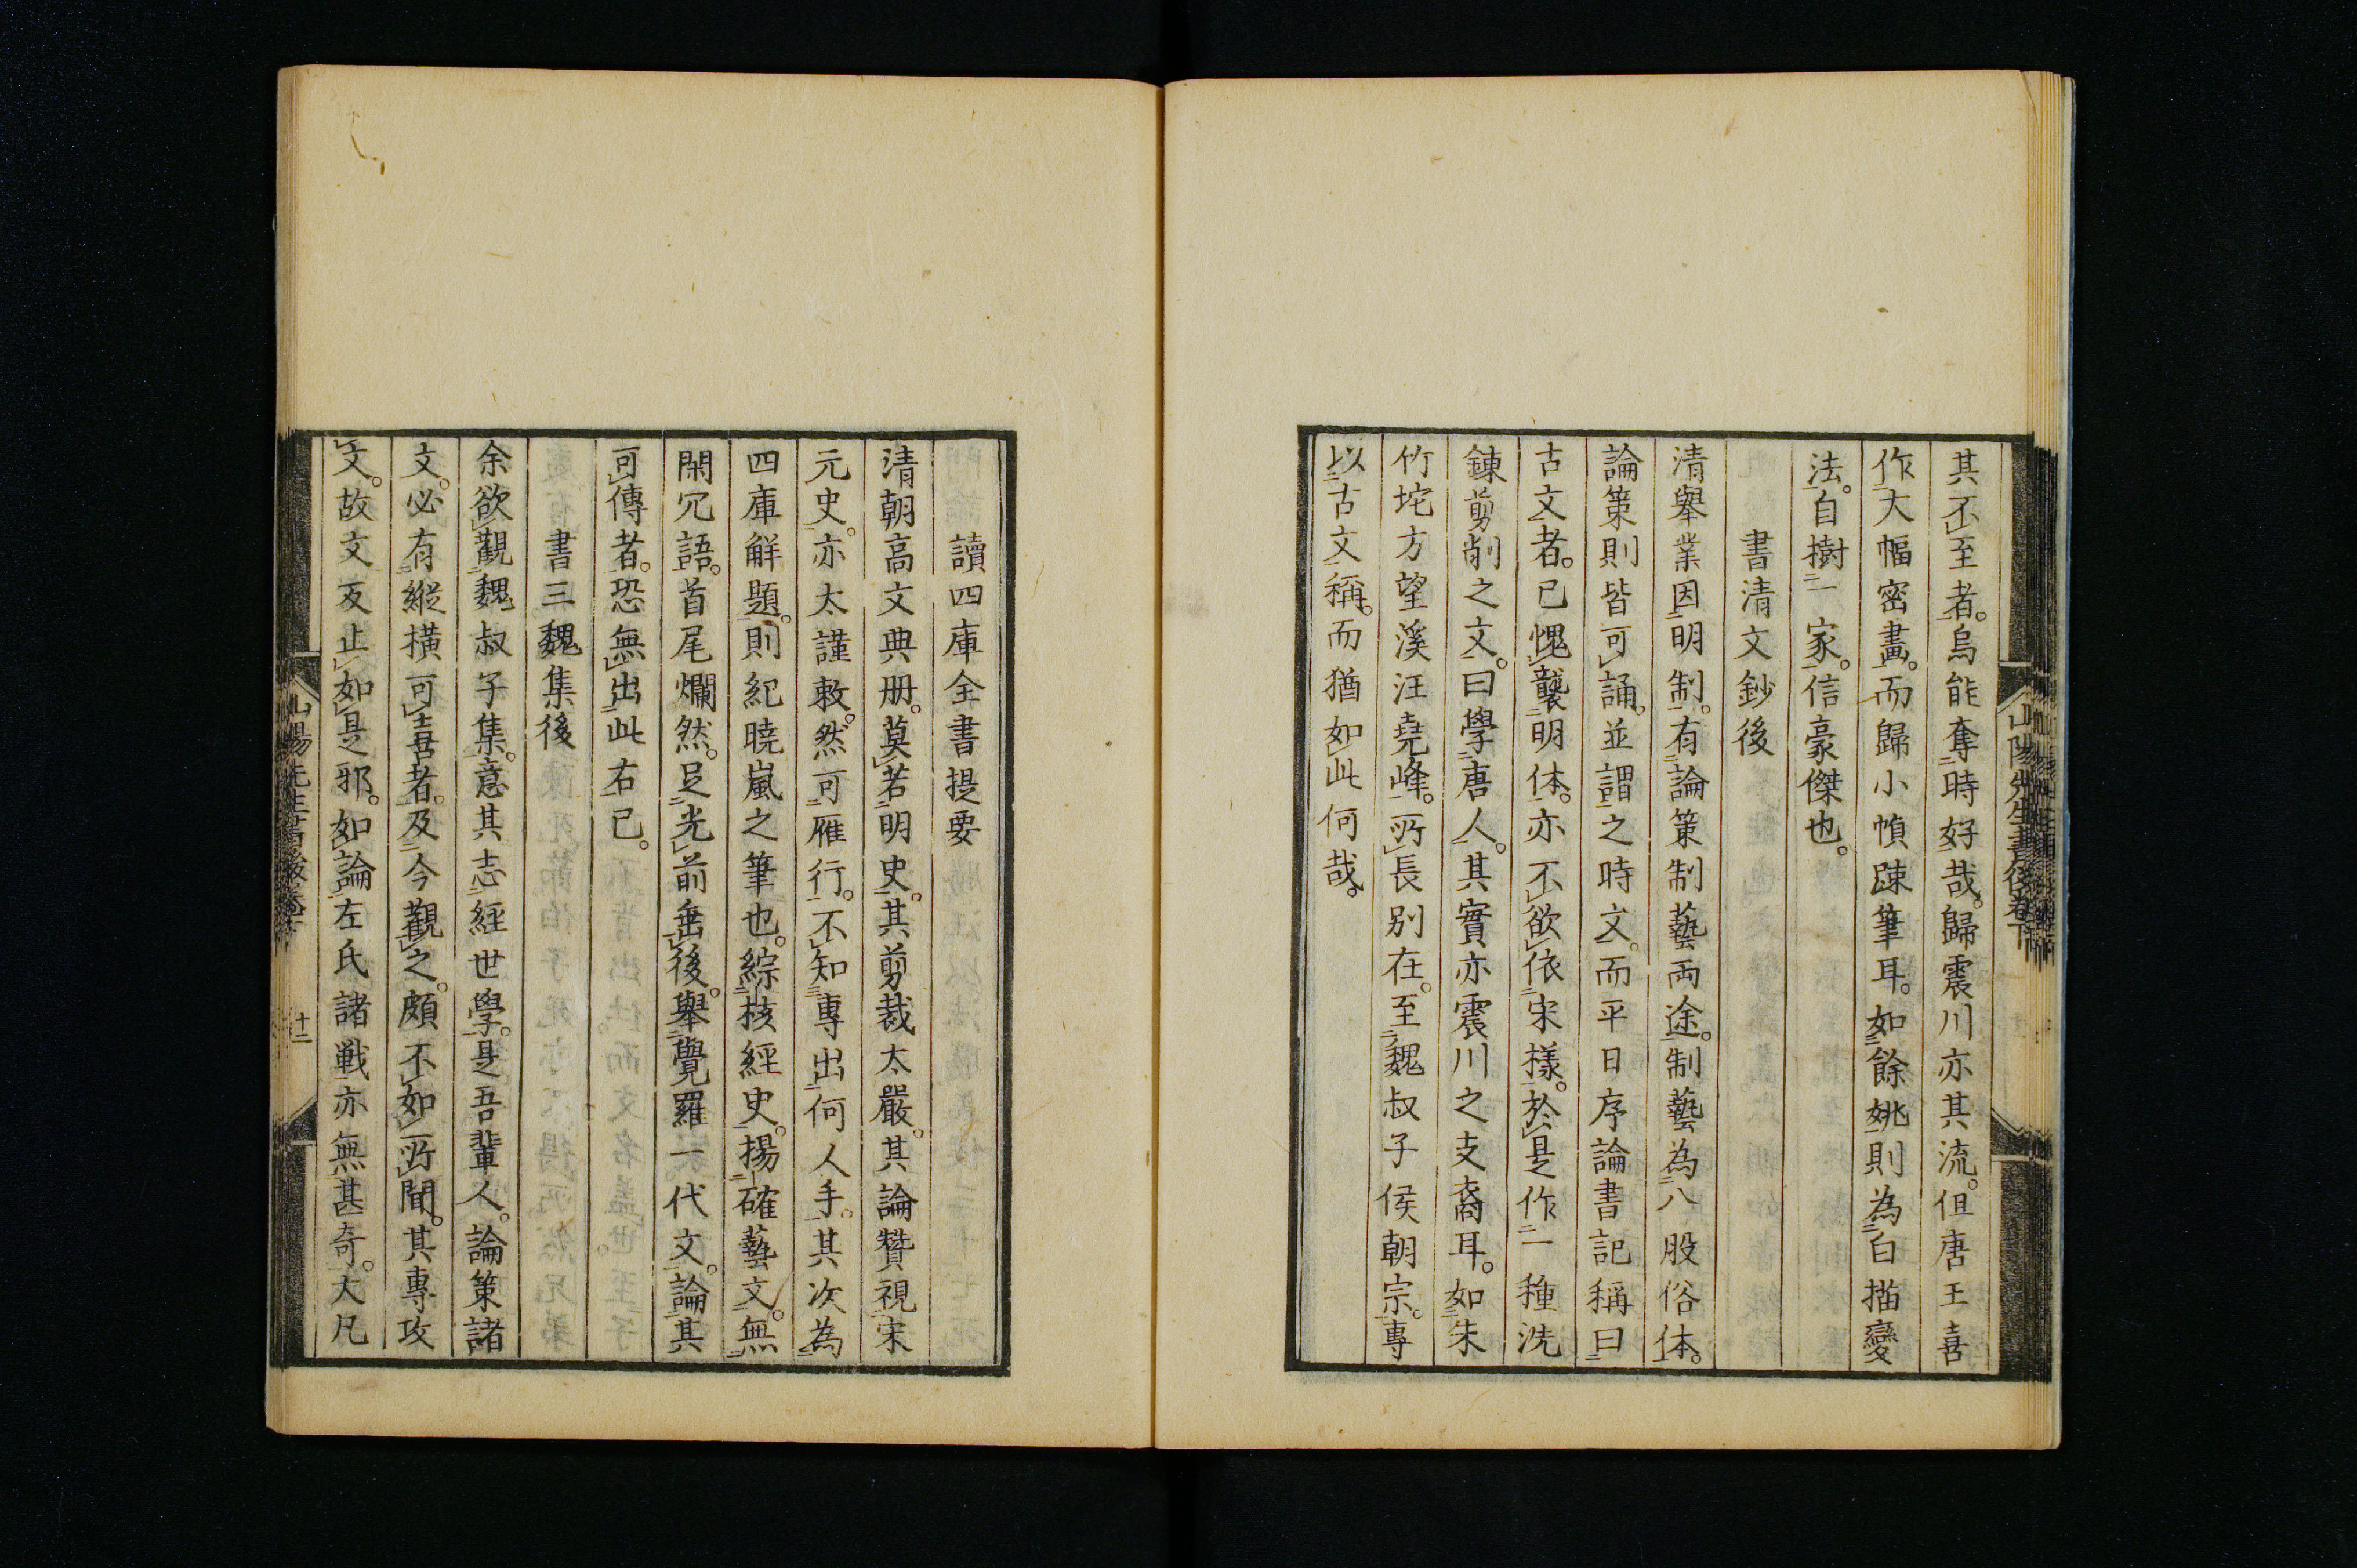 其不至者。烏能奪時好哉。歸震川亦其流。但唐王喜
作大幅密畫。而歸小幀疎筆耳。如餘姚則為白描變
法。自樹一家。信豪傑也。
書清文鈔後
清舉業因明制。有論策制藝兩途。制藝為八股俗体。
論策則皆可誦。並謂之時文。而平日序論書記稱曰
古文者。已愧襲明体。亦不欲依宋樣。於是作一種洗
鍊剪削之文。曰學唐人。其實亦震川之支裔耳。如朱
竹垞方望溪汪堯峰。所長別在。至魏叔子侯朝宗。專
以古文稱。而猶如此何哉。
山陽先生書後卷下
讀四庫全書提要
清朝高文典册。莫若明史。其剪裁太嚴。其論贊視宋
元史。亦太謹敕。然可雁行。不知專出何人手。其次為
四庫解題。則紀曉嵐之筆也。綜核經史。揚確藝文。無
閑冗語。首尾爛然。足光前垂後。舉覺羅一代文。論其
可傳者。恐無出此右已。
書三魏集後
余欲觀魏叔子集。意其志經世學。是吾輩人。論策諸
文。必有縱横可喜者。及今觀之。頗不如所聞。其專攻
文。故文反止如是邪。如論左氏諸戦亦無甚奇。大凡
山陽先生書後卷下
十二